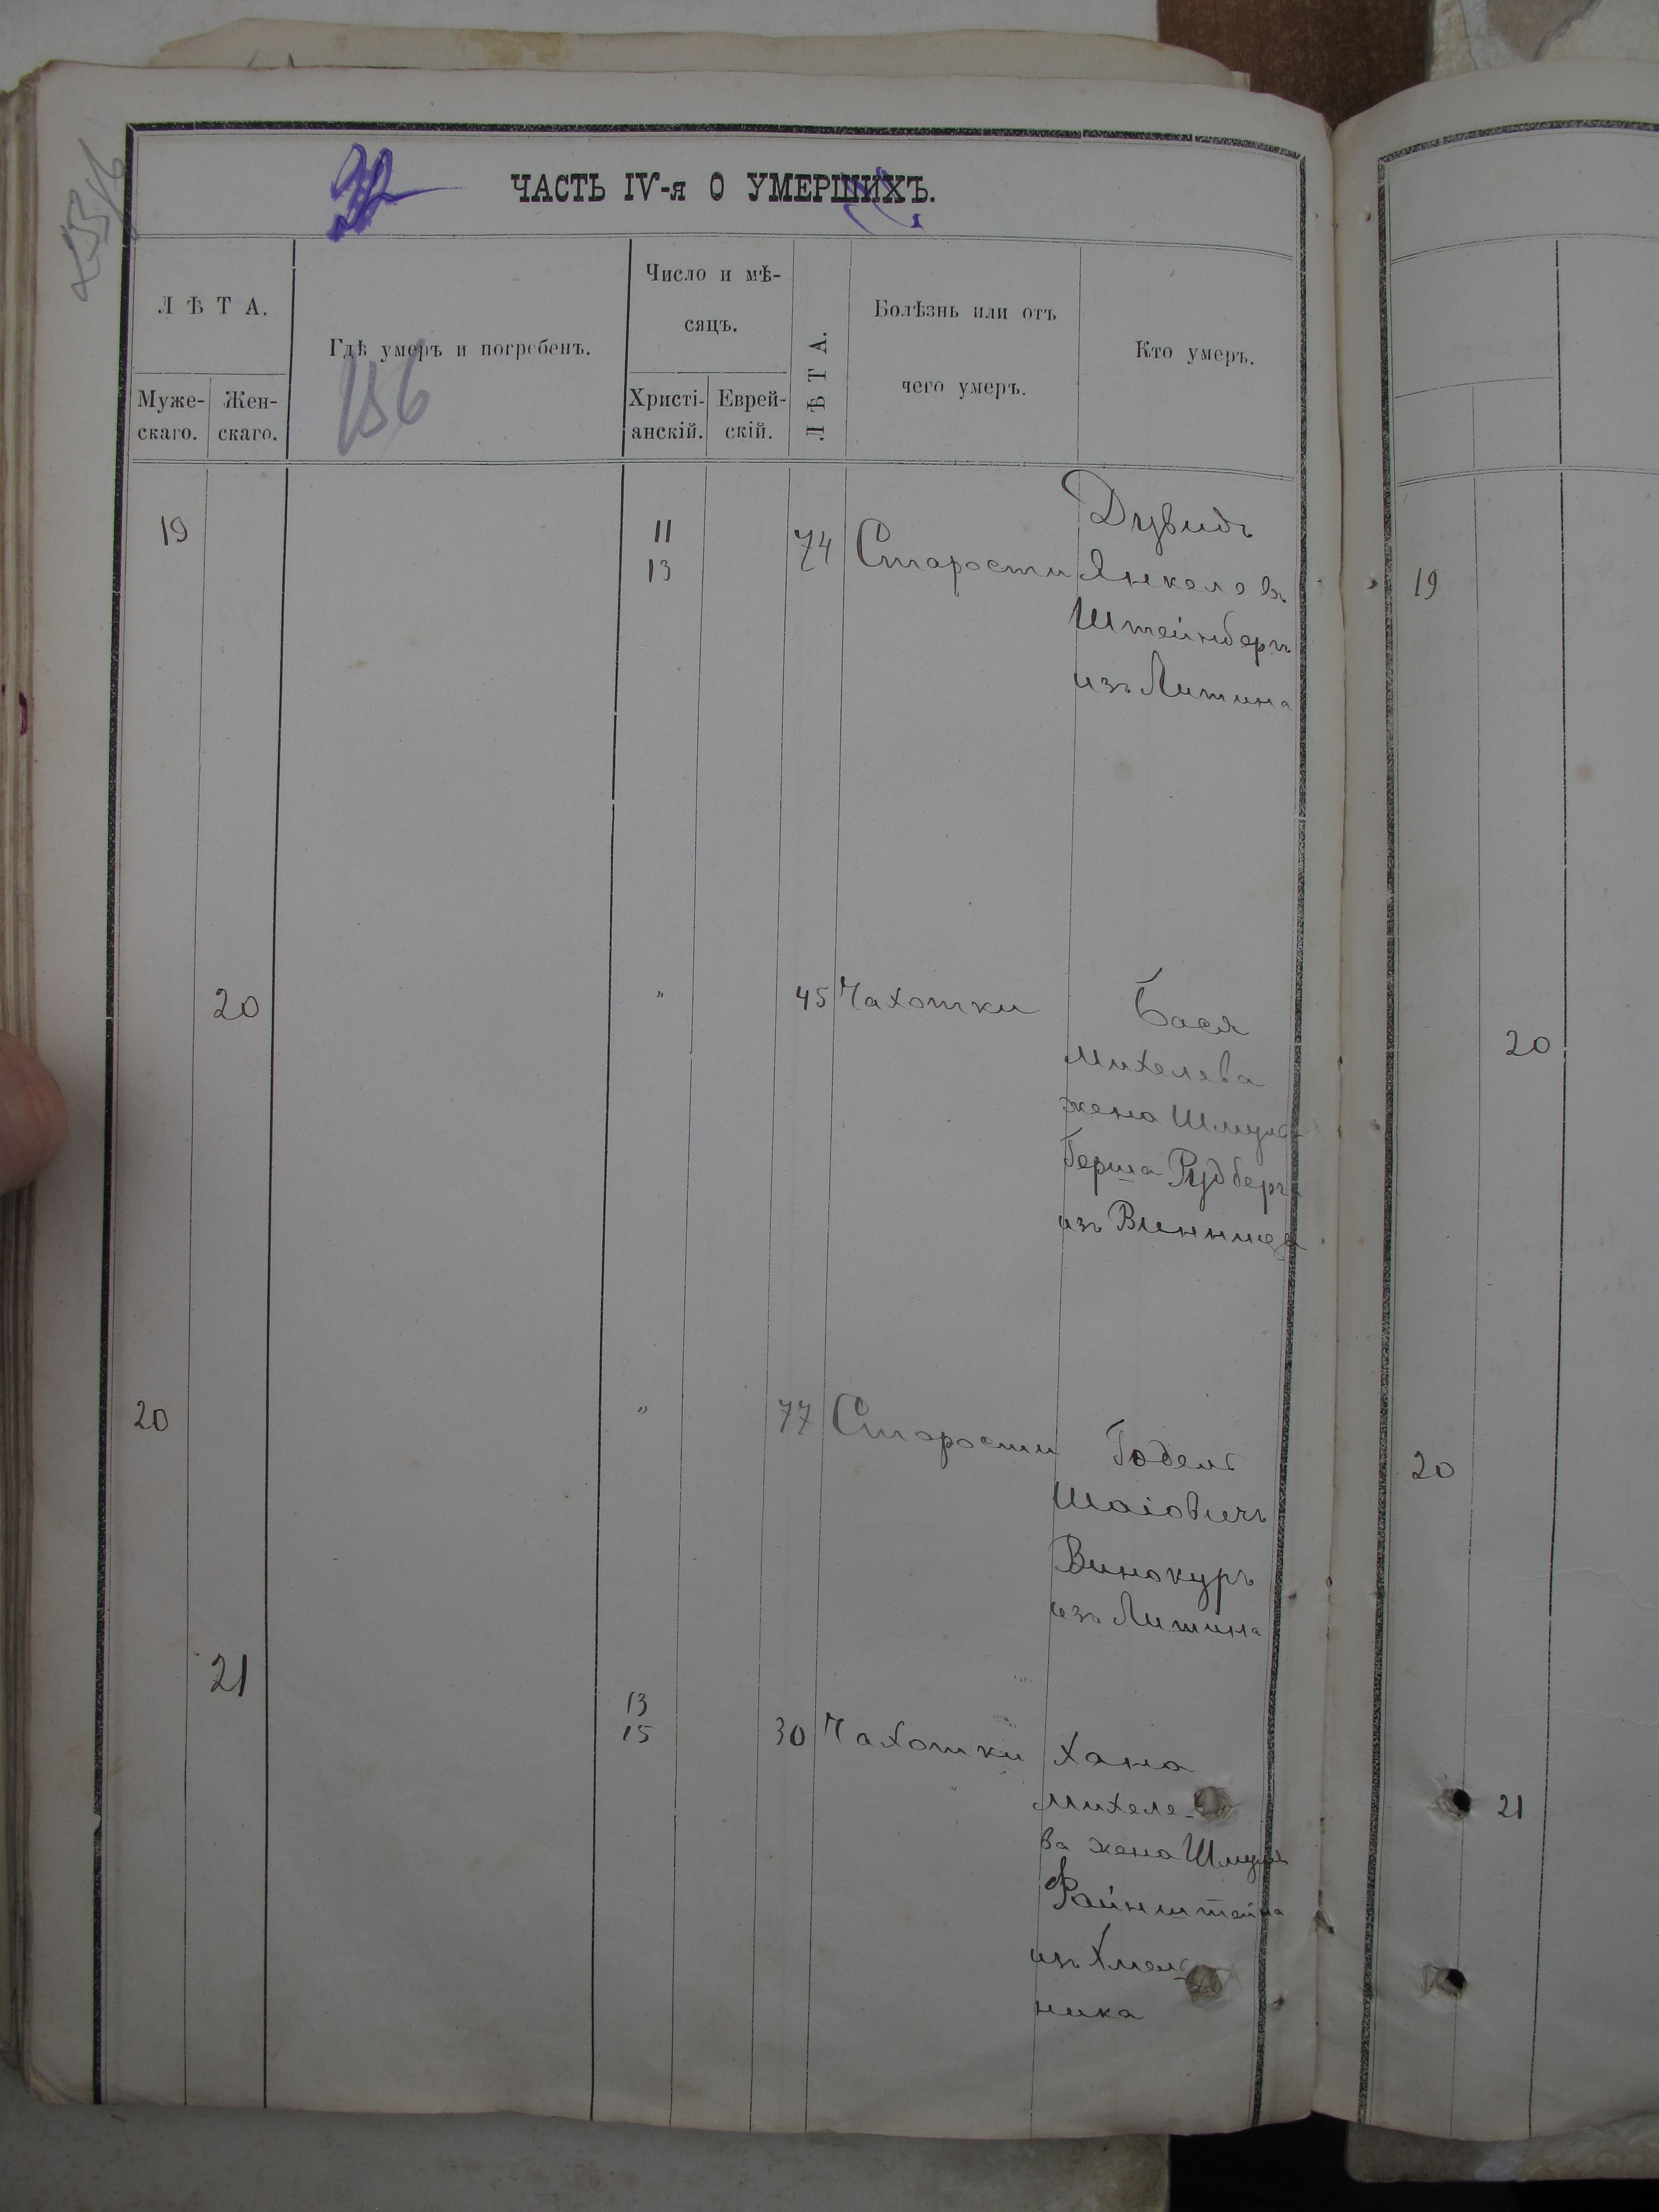 ЧАСТЬ IV-я О УМЕРШИХЪ.
ЛѢТА.
Муже-
скаго.
Жен-
скаго.
Гдѣ умеръ и погребенъ.
156
Число и мѣ-
сяцъ.
Христі-
анскій.
Еврей-
скій.
ЛѢТА.
Болѣзнь или отъ
чего умеръ.
Кто умеръ.
19
11
13
74
Старости
Дувидъ
Янкелевъ
Штейнбергъ
изъ Литина
19
20
"
45
Чахотки
Бася
Михелева
жена Шмуля
Герша Рудберга
изъ Винницы
20
20
"
77
Старости
Годель
Шаіовичъ
Винокуръ
изъ Литина
20
21
13
15
30
Чахотки
Хана
Михеле-
ва жена Шмуля
Файнштейна
изъ Хмель
ника
21